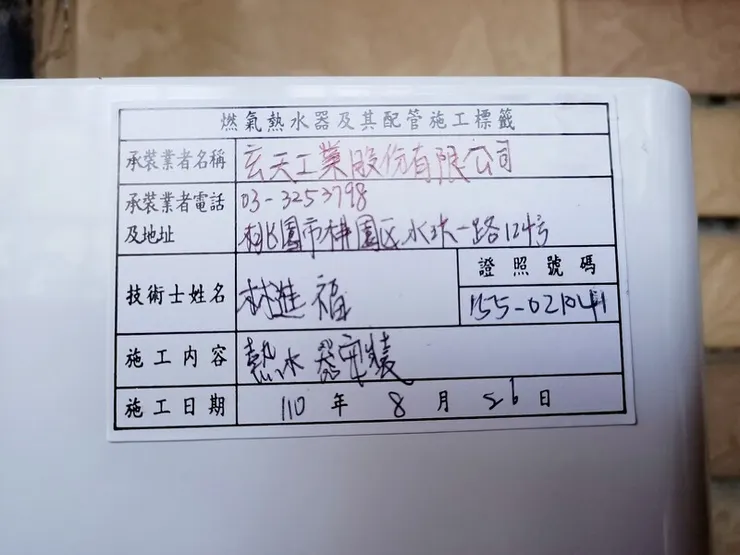 燃氣熱水器及其配管施工標籤
承裝業者名稱 玄天工業股份有限公司
承裝業者電話 03-3253798
及地址 桃園市桃園区水汴一路124号
技術士姓名 林進福
證照號碼
155-021041
施工內容 熱水器安裝
施工日期 110 年 8 月 26 日